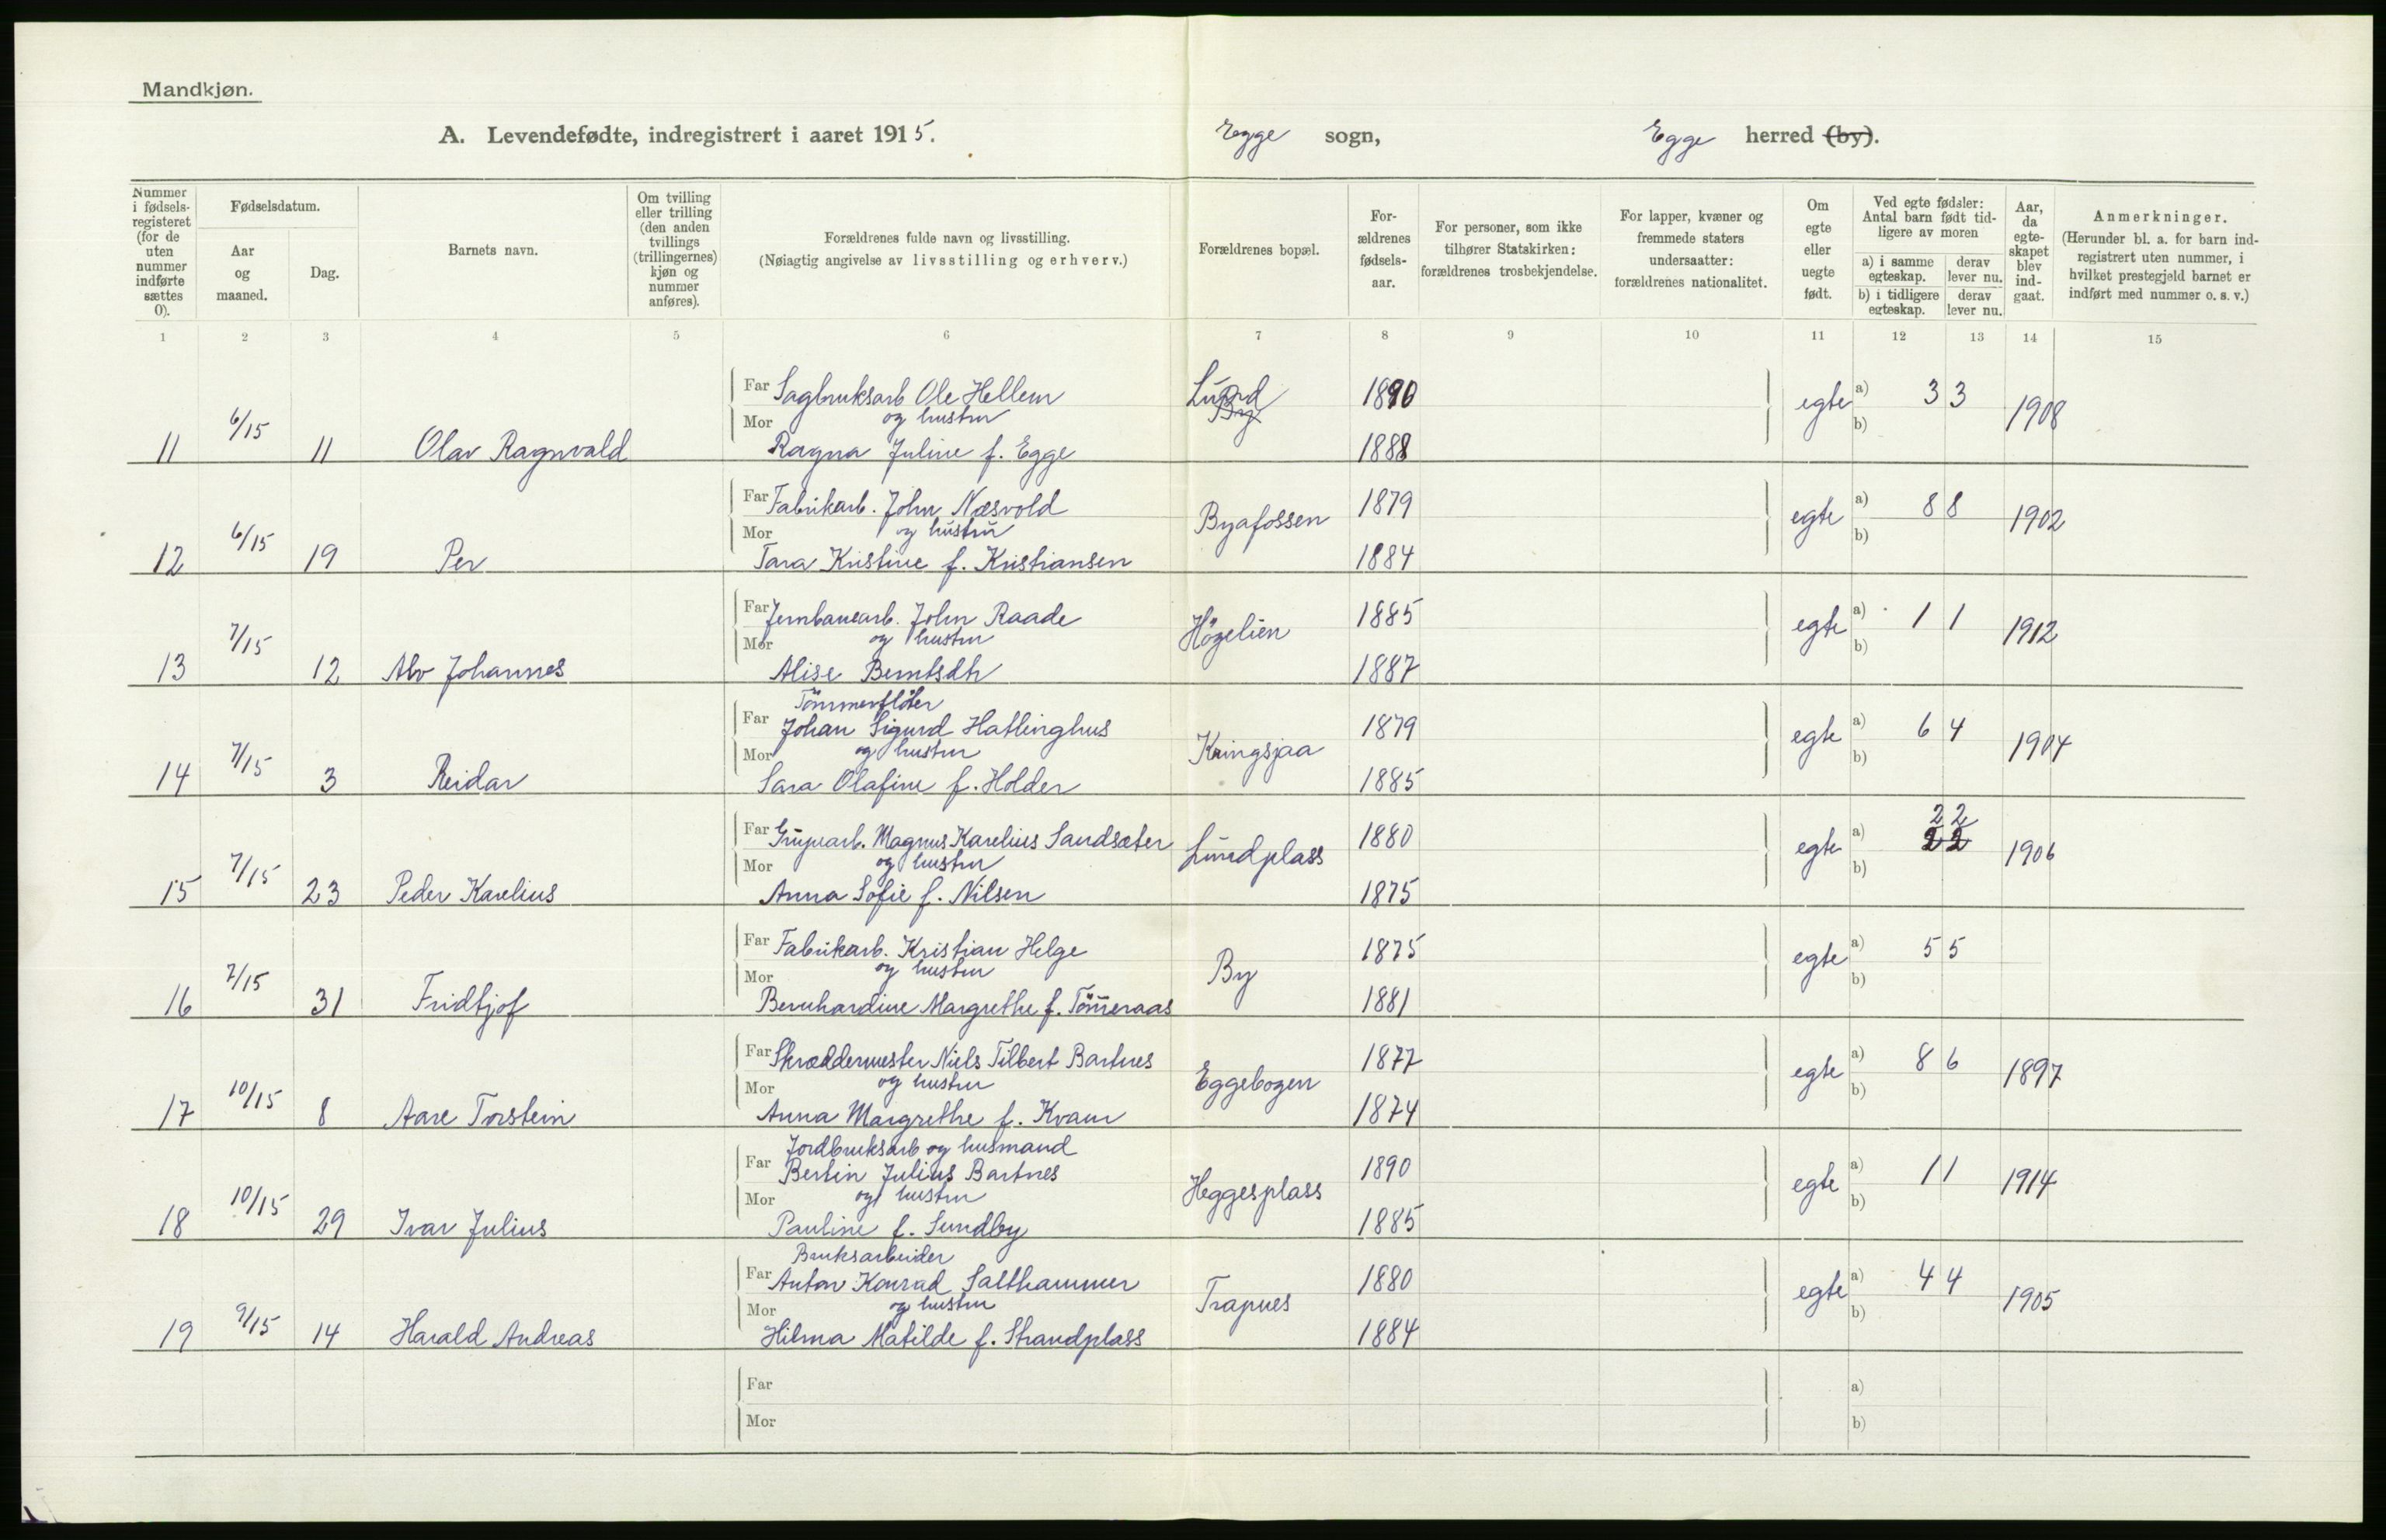 Mandkjøn.
A. Levendefødte, indregistrert i aaret 1915. Egge sogn, Egge herred (by).
Nummer i fødselsregisteret (for de uten nummer indførte sættes 0).
Fødselsdatum.
Aar og maaned.
Dag.
Barnets navn.
Om tvilling eller trilling (den anden tvillings (trillingernes) kjøn og nummer anføres).
Forældrenes fulde navn og livsstilling.
(Nøiagtig angivelse av livsstilling og erhverv.)
Forældrenes bopæl.
Forældrenes fødselsaar.
For personer, som ikke tilhører Statskirken: forældrenes trosbekjendelse.
For lapper, kvæner og fremmede staters undersaatter: forældrenes nationalitet.
Om egte eller uegte født.
Ved egte fødsler: Antal barn født tidligere av moren
a) i samme egteskap. derav lever nu.
b) i tidligere egteskap. derav lever nu.
Aar, da egteskapet blev indgaat.
Anmerkninger.
(Herunder bl. a. for barn indregistrert uten nummer, i hvilket prestegjeld barnet er indført med nummer o. s. v.)
1 2 3 4 5 6 7 8 9 10 11 12 13 14 15
Far Sagbruksarb Ole Hellem Lund 1890 egte a) 3 3 1908
Mor og hustru By b)
11 6/15 11 Olav Ragnvald Ragna Juline f. Egge 1888
Far Fabrikarb. John Næsvold Byafossen 1879 egte a) 8 8 1902
Mor og hustru b)
12 6/15 19 Per Tara Kristine f. Kristiansen 1884
Far Jernbanearb. John Raade Høgelien 1885 egte a) 1 1 1912
Mor og hustru b)
13 7/15 12 Alv Johannes Alise Berntsdtr 1887
Tömmerfløter
Far Johan Sigurd Hatlinghus Kringsjaa 1879 egte a) 6 4 1904
Mor og hustru b)
14 7/15 3 Reidar Sara Olafine f. Holder 1885
2 2
Far Grupearb. Magnus Karelius Sandsæter Lundplass 1880 egte a) 2 2 1906
Mor og hustru b)
15 7/15 23 Peder Karelius Anna Sofie f. Nilsen 1875
Far Fabrikarb. Kristian Helge By 1875 egte a) 5 5
Mor og hustru b)
16 7/15 31 Fridtjof Bernhardine Margrethe f. Töm̄eraas 1881
Far Skræddermester Niels Tilbert Bartnes Eggebogen 1877 egte a) 8 6 1897
Mor og hustru b)
17 10/15 8 Aare Torstein Anna Margrethe f. Kvam 1874
Jordbruksarb og husmand
Far Bertin Julius Bartnes Heggesplass 1890 egte a) 1 1 1914
Mor og hustru b)
18 10/15 29 Ivar Julius Pauline f. Sundby 1885
Bruksarbeider
Far Anton Konrad Salthammer Trapnes 1880 egte a) 4 4 1905
Mor og hustru b)
19 9/15 14 Harald Andreas Hilma Matilde f. Strandplass 1884
Far a)
Mor b)